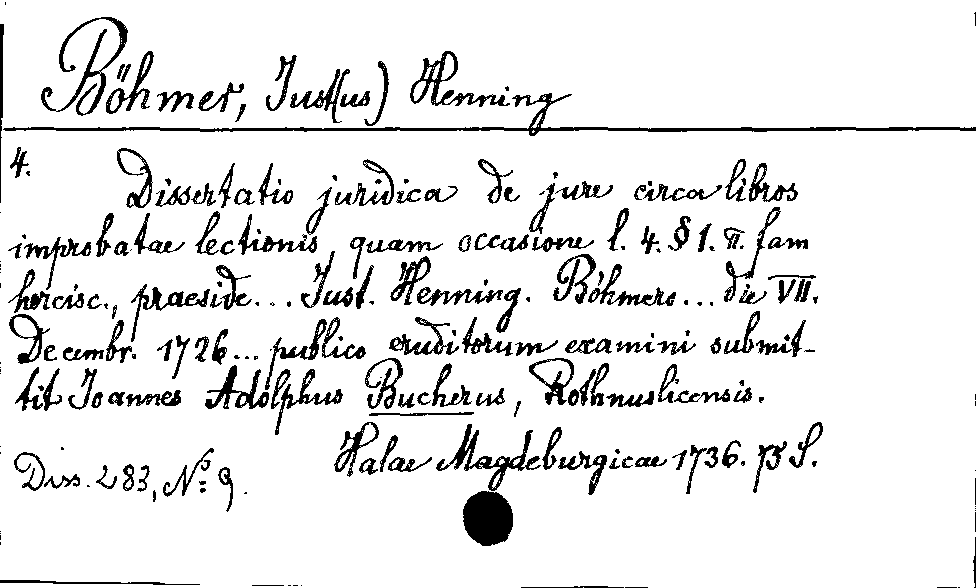 Böhmer, Just(us) Henning
4.
Dissertatio juridica de jure circa libros
improbatae lectionis, quam occasione l. 4. § 1. π. fam
hercisc., praeside... Just. Henning. Böhmero... die VII.
Decembr. 1726... publico eruditorum examini submit-
tit Joannes Adolphus Bucherus, Rothnuslicensis.
Halae Magdeburgicae 1736. 75 S.
Diss. 283, No: 9.